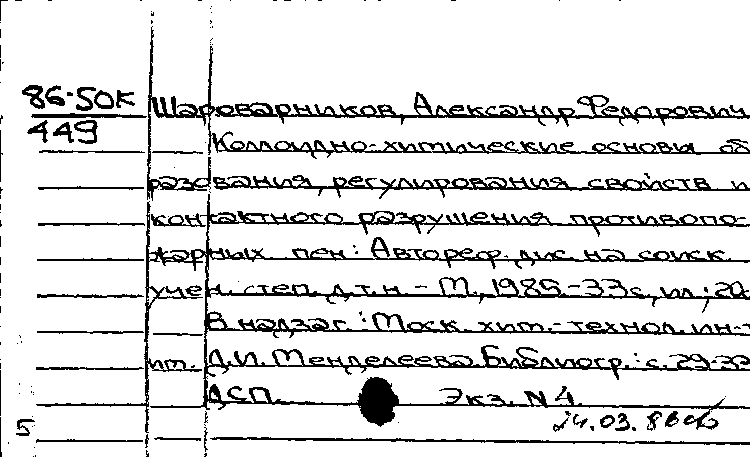 86-50К Шароварников, Александр Федорович
449 Коллоидно-химические основы об
разования, регулирования свойств и
контактного разрушения противопо-
жарных пен: Автореф. дис. на соиск.
учен. степ. д.т.н. - М., 1985.-33с., ил; 20
В надзаг.: Моск. хим.-технол. ин-т
им. Д.И. Менделеева. Библиогр.: с. 29-33
ДСП. Экз. N 4.
24.03.86
5